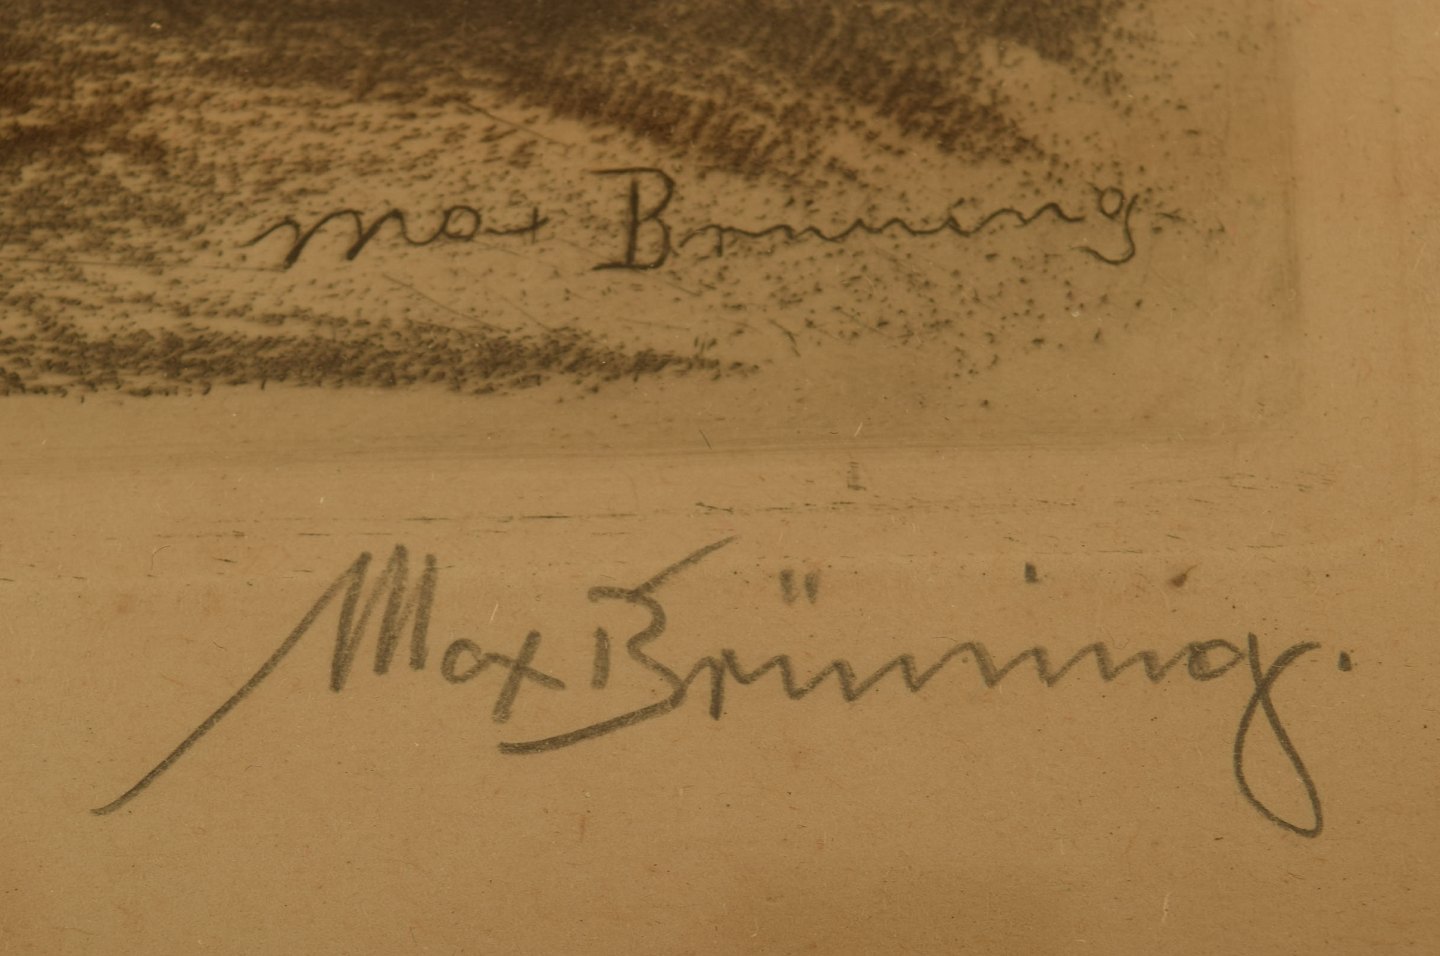 Max Brüning
Max Brüning.